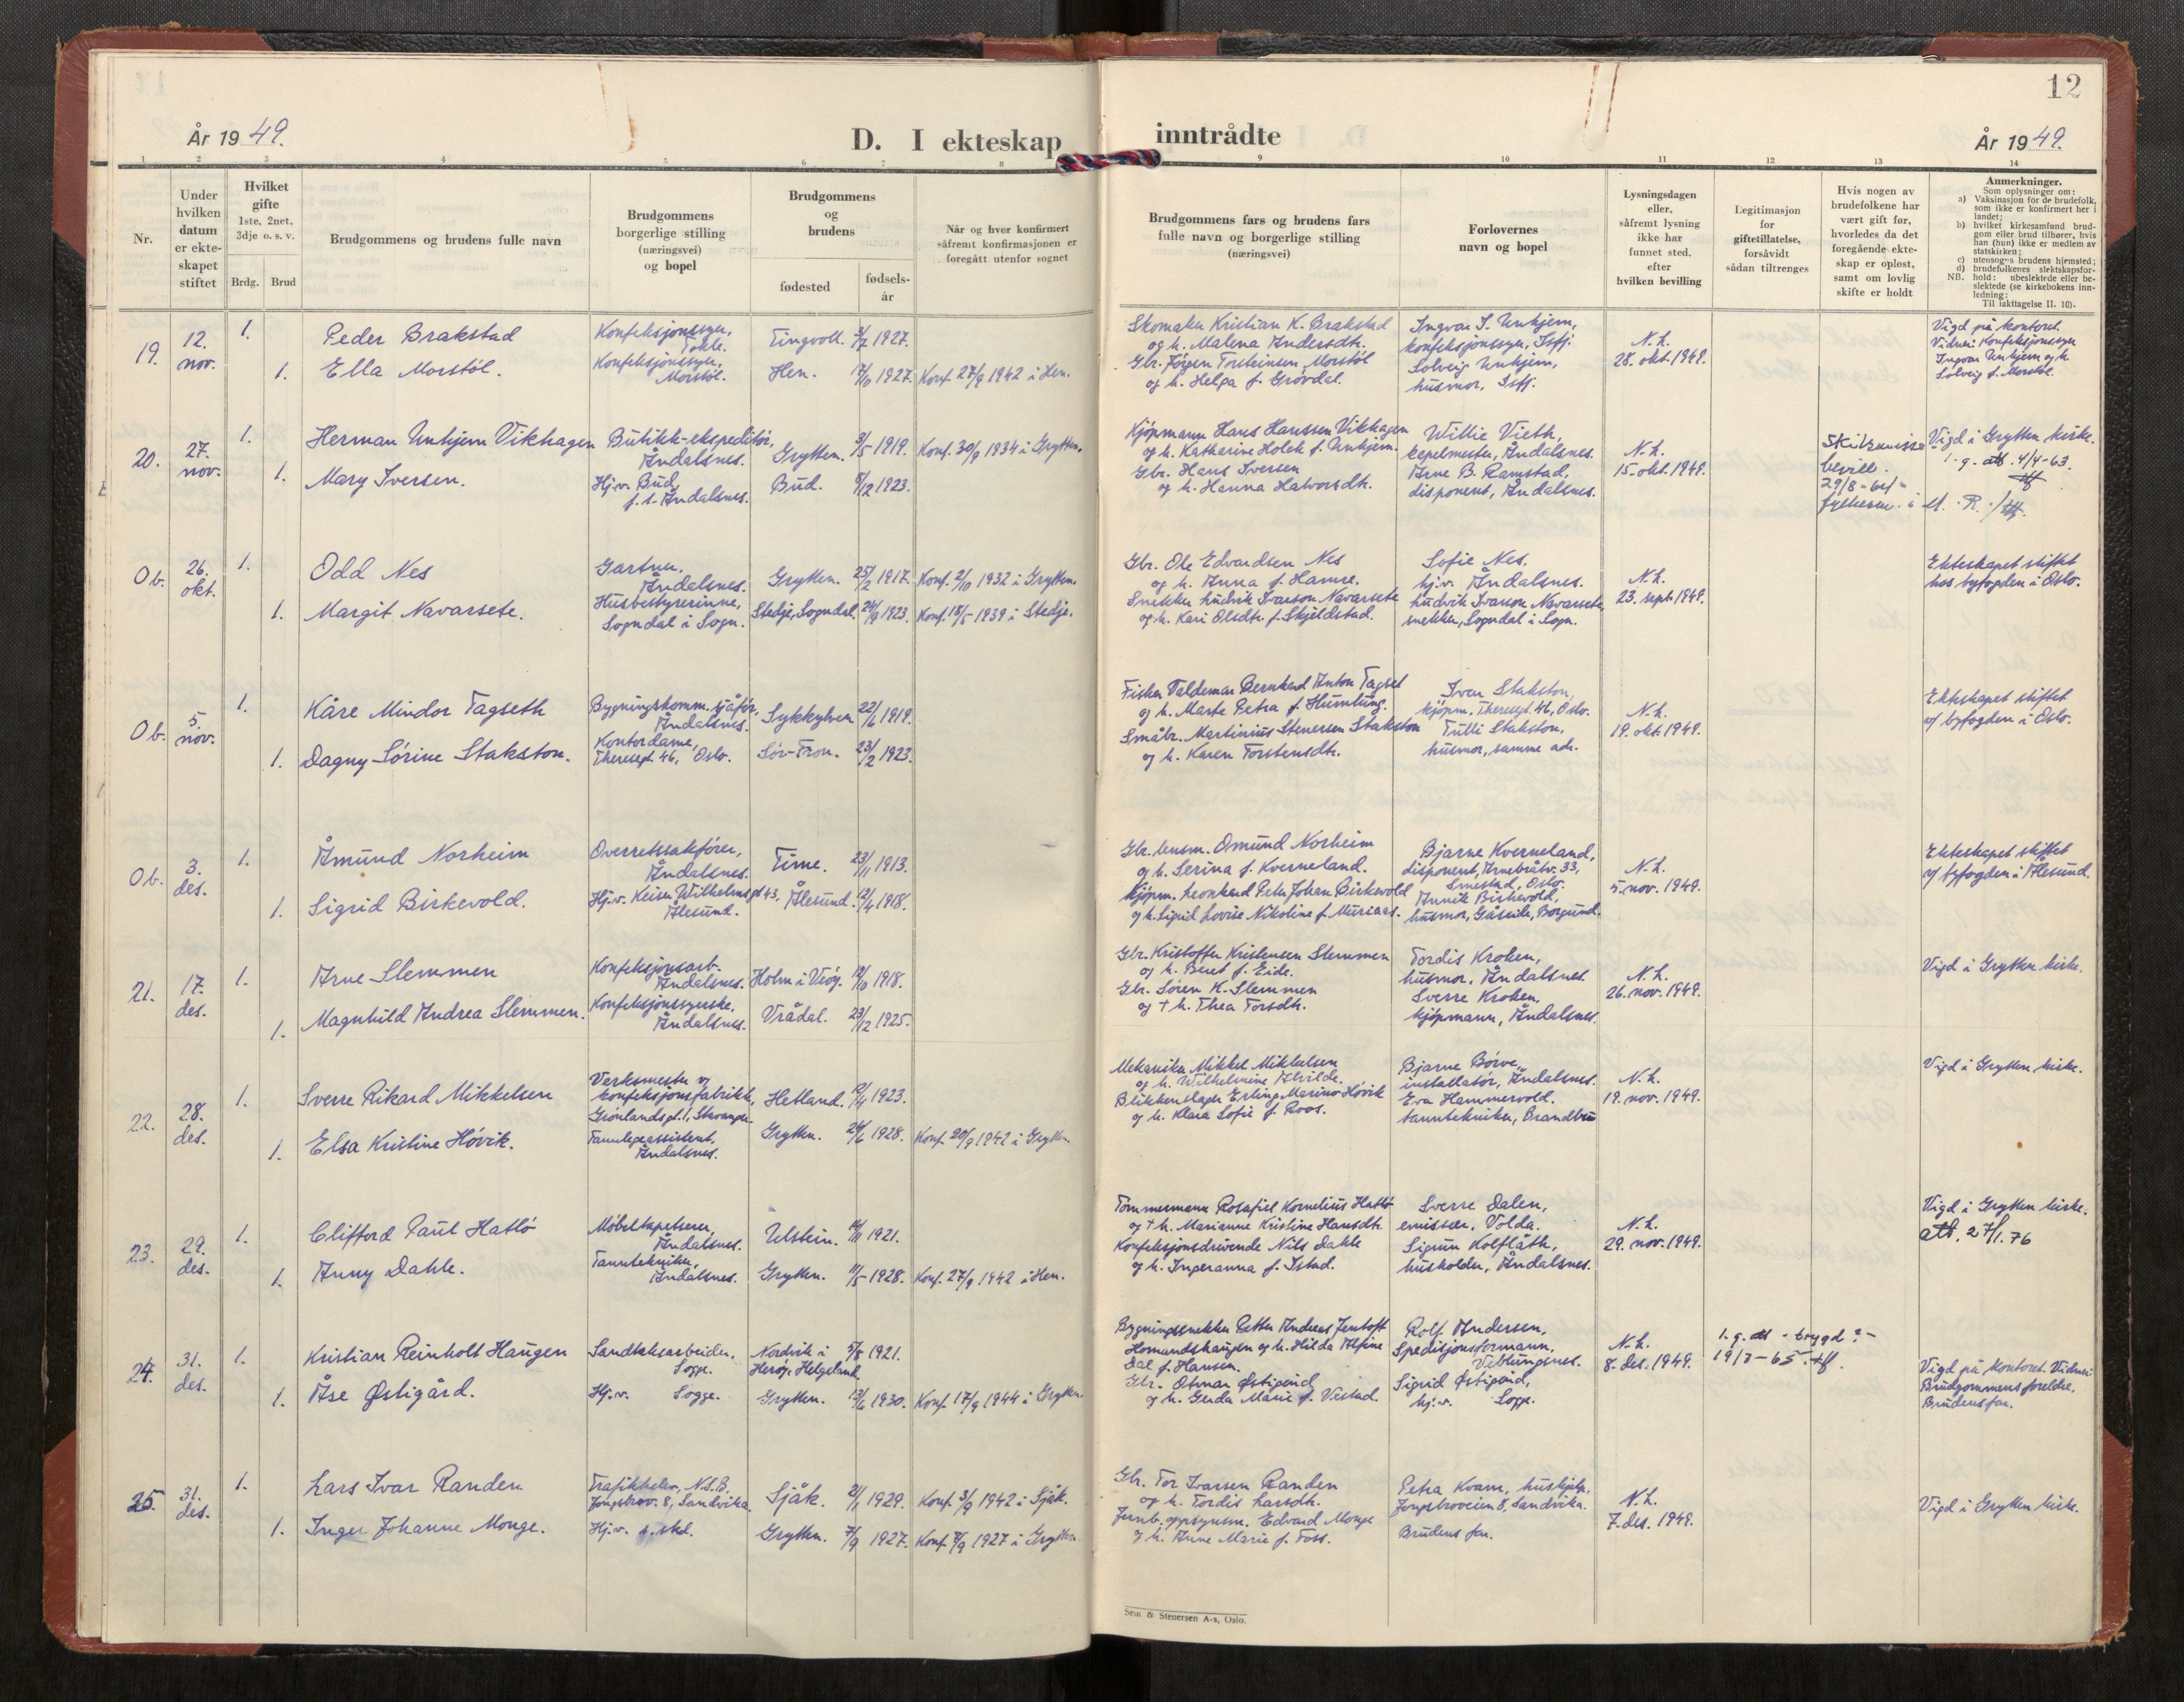 12
År 1949.
D. I ekteskap inntrådte
År 1949.
1 2 3 4 5 6 7 8 9 10 11 12 13 14
Nr.
Under
hvilken
datum
er ekte-
skapet
stiftet
Hvilket
gifte
1ste, 2net,
3dje o. s. v.
Brdg. Brud
Brudgommens og brudens fulle navn
Brudgommens
borgerlige stilling
(næringsvei)
og bopel
Brudgommens
og
brudens
fødested
fødsels-
år
Når og hvor konfirmert
såfremt konfirmasjonen er
foregått utenfor sognet
Brudgommens fars og brudens fars
fulle navn og borgerlige stilling
(næringsvei)
Forlovernes
navn og bopel
Lysningsdagen
eller,
såfremt lysning
ikke har
funnet sted,
efter
hvilken bevilling
Legitimasjon
for
giftetillatelse,
forsåvidt
sådan tiltrenges
Hvis nogen av
brudefolkene har
vært gift før,
hvorledes da det
foregående ekte-
skap er opløst,
samt om lovlig
skifte er holdt
Anmerkninger.
Som oplysninger om:
a) Vaksinasjon for de brudefolk,
som ikke er konfirmert her i
landet;
b) hvilket kirkesamfund brud-
gom eller brud tilhører, hvis
han (hun) ikke er medlem av
statskirken;
c) utensogns brudens hjemsted;
d) brudefolkenes slektskapsfor-
hold: ubeslektede eller be-
slektede (se kirkebokens inn-
ledning:
NB.
Til iakttagelse II. 10).
19.
12.
nov.
1.
Peder Brakstad
Konfeksjonssyer,
Tokle.
Tingvoll. 3/7 1927.
1.
Ella Morstøl.
Konfeksjonssyer,
Morstøl.
Hen. 17/10 1927. Konf. 27/9 1942 i Hen.
Skomaker Kristian K. Brakstad
og h. Malena Andersdtr.
Gbr. Jørgen Torsteinsen Morstøl
og h. Helga f. Grøvdal.
Ingvar S. Unhjem,
konfeksjonssyer, Isfj.
Solveig Unhjem,
husmor, Isfj.
N.L.
28. okt. 1949.
Vigd på kontoret.
Vidner: Konfeksjonssyer
Ingvar Unhjem og h.
Solveig f. Morstøl.
20.
27.
nov.
1.
Herman Unhjem Vikhagen
Butikk-ekspeditør,
Åndalsnes.
Grytten. 3/5 1919. Konf. 30/9 1934 i Grytten.
1.
Mary Iversen.
Hj.v. Bud,
f.t. Åndalsnes.
Bud. 8/12 1923.
Kjøpmann Hans Hanssen Vikhagen
og h. Katharine Holck f. Unhjem.
Gbr. Hans Iversen
og h. Hanna Halvorsdtr.
Willie Vieth,
kapelmester, Åndalsnes.
Arne B. Ramstad,
disponent, Åndalsnes.
N.L.
15. okt. 1949.
Skilsmisse
bevill.
29/8-64
fylkesm. i M. R.
Vigd i Grytten kirke.
l.g. att. 4/4-63.
Ob.
26.
okt.
1.
Odd Nes
Gartner,
Åndalsnes.
Grytten. 25/2 1917. Konf. 2/10 1932 i Grytten.
1.
Margit Navarsete.
Husbestyrerinne,
Sogndal i Sogn.
Stedje, Sogndal. 24/9 1923. Konf. 18/5 1939 i Stedje.
Gbr. Ole Edvardsen Nes
og h. Anna f. Hamre.
Snekker Ludvik Ivarson Navarsete
og h. Kari Olsdtr. f. Skjeldstad.
Sofie Nes,
hj.v. Åndalsnes.
Ludvik Ivarson Navarsete,
snekker, Sogndal i Sogn.
N.L.
23. sept. 1949.
Ekteskapet stiftet
hos byfogden i Oslo.
Ob.
5.
nov.
1.
Kåre Mindor Tagseth
Bygningskomm. sjåfør,
Åndalsnes.
Sykkylven 22/6 1919.
1.
Dagny Sørine Stakston.
Kontordame,
Theresgt. 46, Oslo.
Sør-Fron. 23/2 1923.
Fisker Valdemar Bernhard Anton Tagset
og h. Marte Petra f. Humlung.
Småbr. Martinius Stenersen Stakston
og h. Karen Torstensdtr.
Ivar Stakston,
kjøpm., Theresgt. 46, Oslo.
Tulli Stakston,
husmor, samme adr.
N.L.
19. okt. 1949.
Ekteskapet stiftet
v/ byfogden i Oslo.
Ob.
3.
des.
1.
Åmund Norheim
Overretssakfører,
Åndalsnes.
Time. 23/11 1913.
1.
Sigrid Birkevold.
Hj.v. Keiser Wilhelmsgt 43,
Ålesund.
Ålesund. 12/4 1918.
Gbr. lensm. Omund Norheim
og h. Serina f. Kverneland.
Kjøpm. Leonhard Peter Johan Birkevold
og h. Sigrid Lovise Nikoline f. Muriaas.
Bjarne Kverneland,
disponent, Arnebråtv. 33,
Smestad, Oslo.
Annik Birkevold,
husmor, Gåseide, Borgund.
N.L.
5. nov. 1949.
Ekteskapet stiftet
v/ byfogden i Ålesund.
21.
17.
des.
1.
Arne Slemmen
Konfeksjonsarb.
Åndalsnes.
Holm i Veøy. 12/10 1918.
1.
Magnhild Andrea Slemmen.
Konfeksjonssyerske,
Åndalsnes.
Vrådal. 23/12 1925.
Gbr. Kristoffer Kristensen Slemmen
og h. Beret f. Eide.
Gbr. Søren K. Slemmen
og † h. Thea Torsdtr.
Tordis Kroken,
husmor, Åndalsnes
Sverre Kroken,
kjøpmann, Åndalsnes.
N.L.
26. nov. 1949.
Vigd i Grytten kirke.
22.
28.
des.
1.
Sverre Rikard Mikkelsen
Verksmester v/
konfeksjonsfabrikk,
Grønlandsgt. 1, Stavanger
Hetland. 12/4 1923.
1.
Elsa Kristine Høvik.
Tannlegeassistent,
Åndalsnes.
Grytten. 24/6 1928. Konf. 20/9 1942 i Grytten.
Mekaniker Mikkel Mikkelsen
og h. Wilhelmine Alvilde.
Blikkenslager Erling Marino Høvik
og h. Klara Sofie f. Roos.
Bjarne Børve,
installatør, Åndalsnes.
Eva Hammervold.
tanntekniker, Brandbu
N.L.
19. nov. 1949.
Vigd i Grytten kirke.
23.
29.
des.
1.
Clifford Paul Hatlø
Møbeltapetserer,
Åndalsnes.
Ulstein. 14/11 1921.
1.
Anny Dahle.
Tanntekniker,
Åndalsnes.
Grytten. 11/5 1928. Konf. 27/9 1942 i Hen.
Tømmermann Rosafiel Kornelius Hatlø
og † h. Marianne Kristine Hansdtr.
Konfeksjonsdrivende Nils Dahle
og h. Ingeranna f. Istad.
Sverre Dalen,
emissær, Volda.
Sigrun Kolflåth,
husholder, Åndalsnes.
N.L.
29. nov. 1949.
Vigd i Grytten kirke.
att. 27/1. 76
24.
31.
des.
1.
Kristian Reinholt Haugen
Sandtaksarbeider,
Sogge.
Nordvik i
Herøy, Helgeland
5/8 1921.
1.
Åse Østigård.
Hj.v. Sogge.
Grytten. 13/6 1930. Konf. 17/9 1944 i Grytten.
Bygningssnekker Petter Andreas Jentoft
Homandshaugen og h. Hilda Alfine
Dal f. Hansen.
Gbr. Otmar Østigård
og h. Gerda Marie f. Vestad.
Rolf Andersen,
Spedisjonsformann,
Veblungsnes.
Sigrid Østigård,
hj.v. Sogge.
N.L.
8. des. 1949.
l.g. att - trygd ? -
19/3-65.
Vigd på kontoret. Vidner:
Brudgommens foreldre,
Brudens far.
25.
31.
des.
1.
Lars Ivar Randen
Trafikkelev, N.S.B.,
Jongsbrov. 8, Sandvika
Sjåk. 21/1 1929. Konf. 3/9 1942 i Sjåk.
1.
Inger Johanne Monge.
Hj.v. s. std.
Grytten. 7/9 1927. Konf. 4/9 1927 i Grytten.
Gbr. Tor Ivarsen Randen
og h. Tordis Larsdtr.
Jernb. oppsynsm. Edvard Monge
og h. Anne Marie f. Foss.
Petra Kvam, hushjelp,
Jongsbroveien 8, Sandvika.
Brudens far.
N.L.
7. des. 1949.
Vigd i Grytten kirke.
Sem & Stenersen A-s, Oslo.